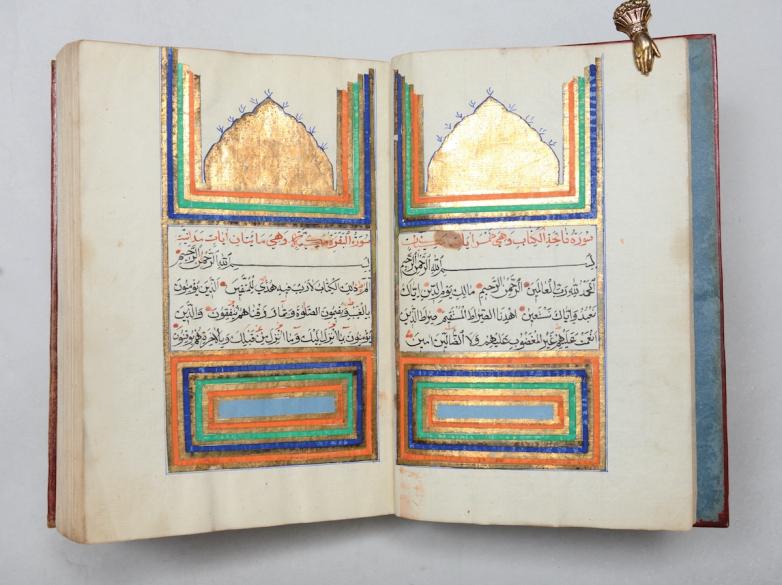 سورة فاتحة الكتاب وهي
بسم الله الرحمن الرحيم
الحمد لله رب العالمين الرحمن الرحيم مالك يوم الدين اياك
نعبد واياك نستعين اهدنا الصراط المستقيم صراط الذين
انعمت عليهم غير المغضوب عليهم ولا الضالين امين
سورة البقرة وهي مايتان ايات
بسم الله الرحمن الرحيم
الم ذلك الكتاب لاريب فيه هدى للمتقين الذين يؤمنون
بالغيب ويقيمون الصلوة ومما رزقناهم ينفقون والذين
يؤمنون بما انزل اليك وما انزل من قبلك وبالاخرة هم يوقنون